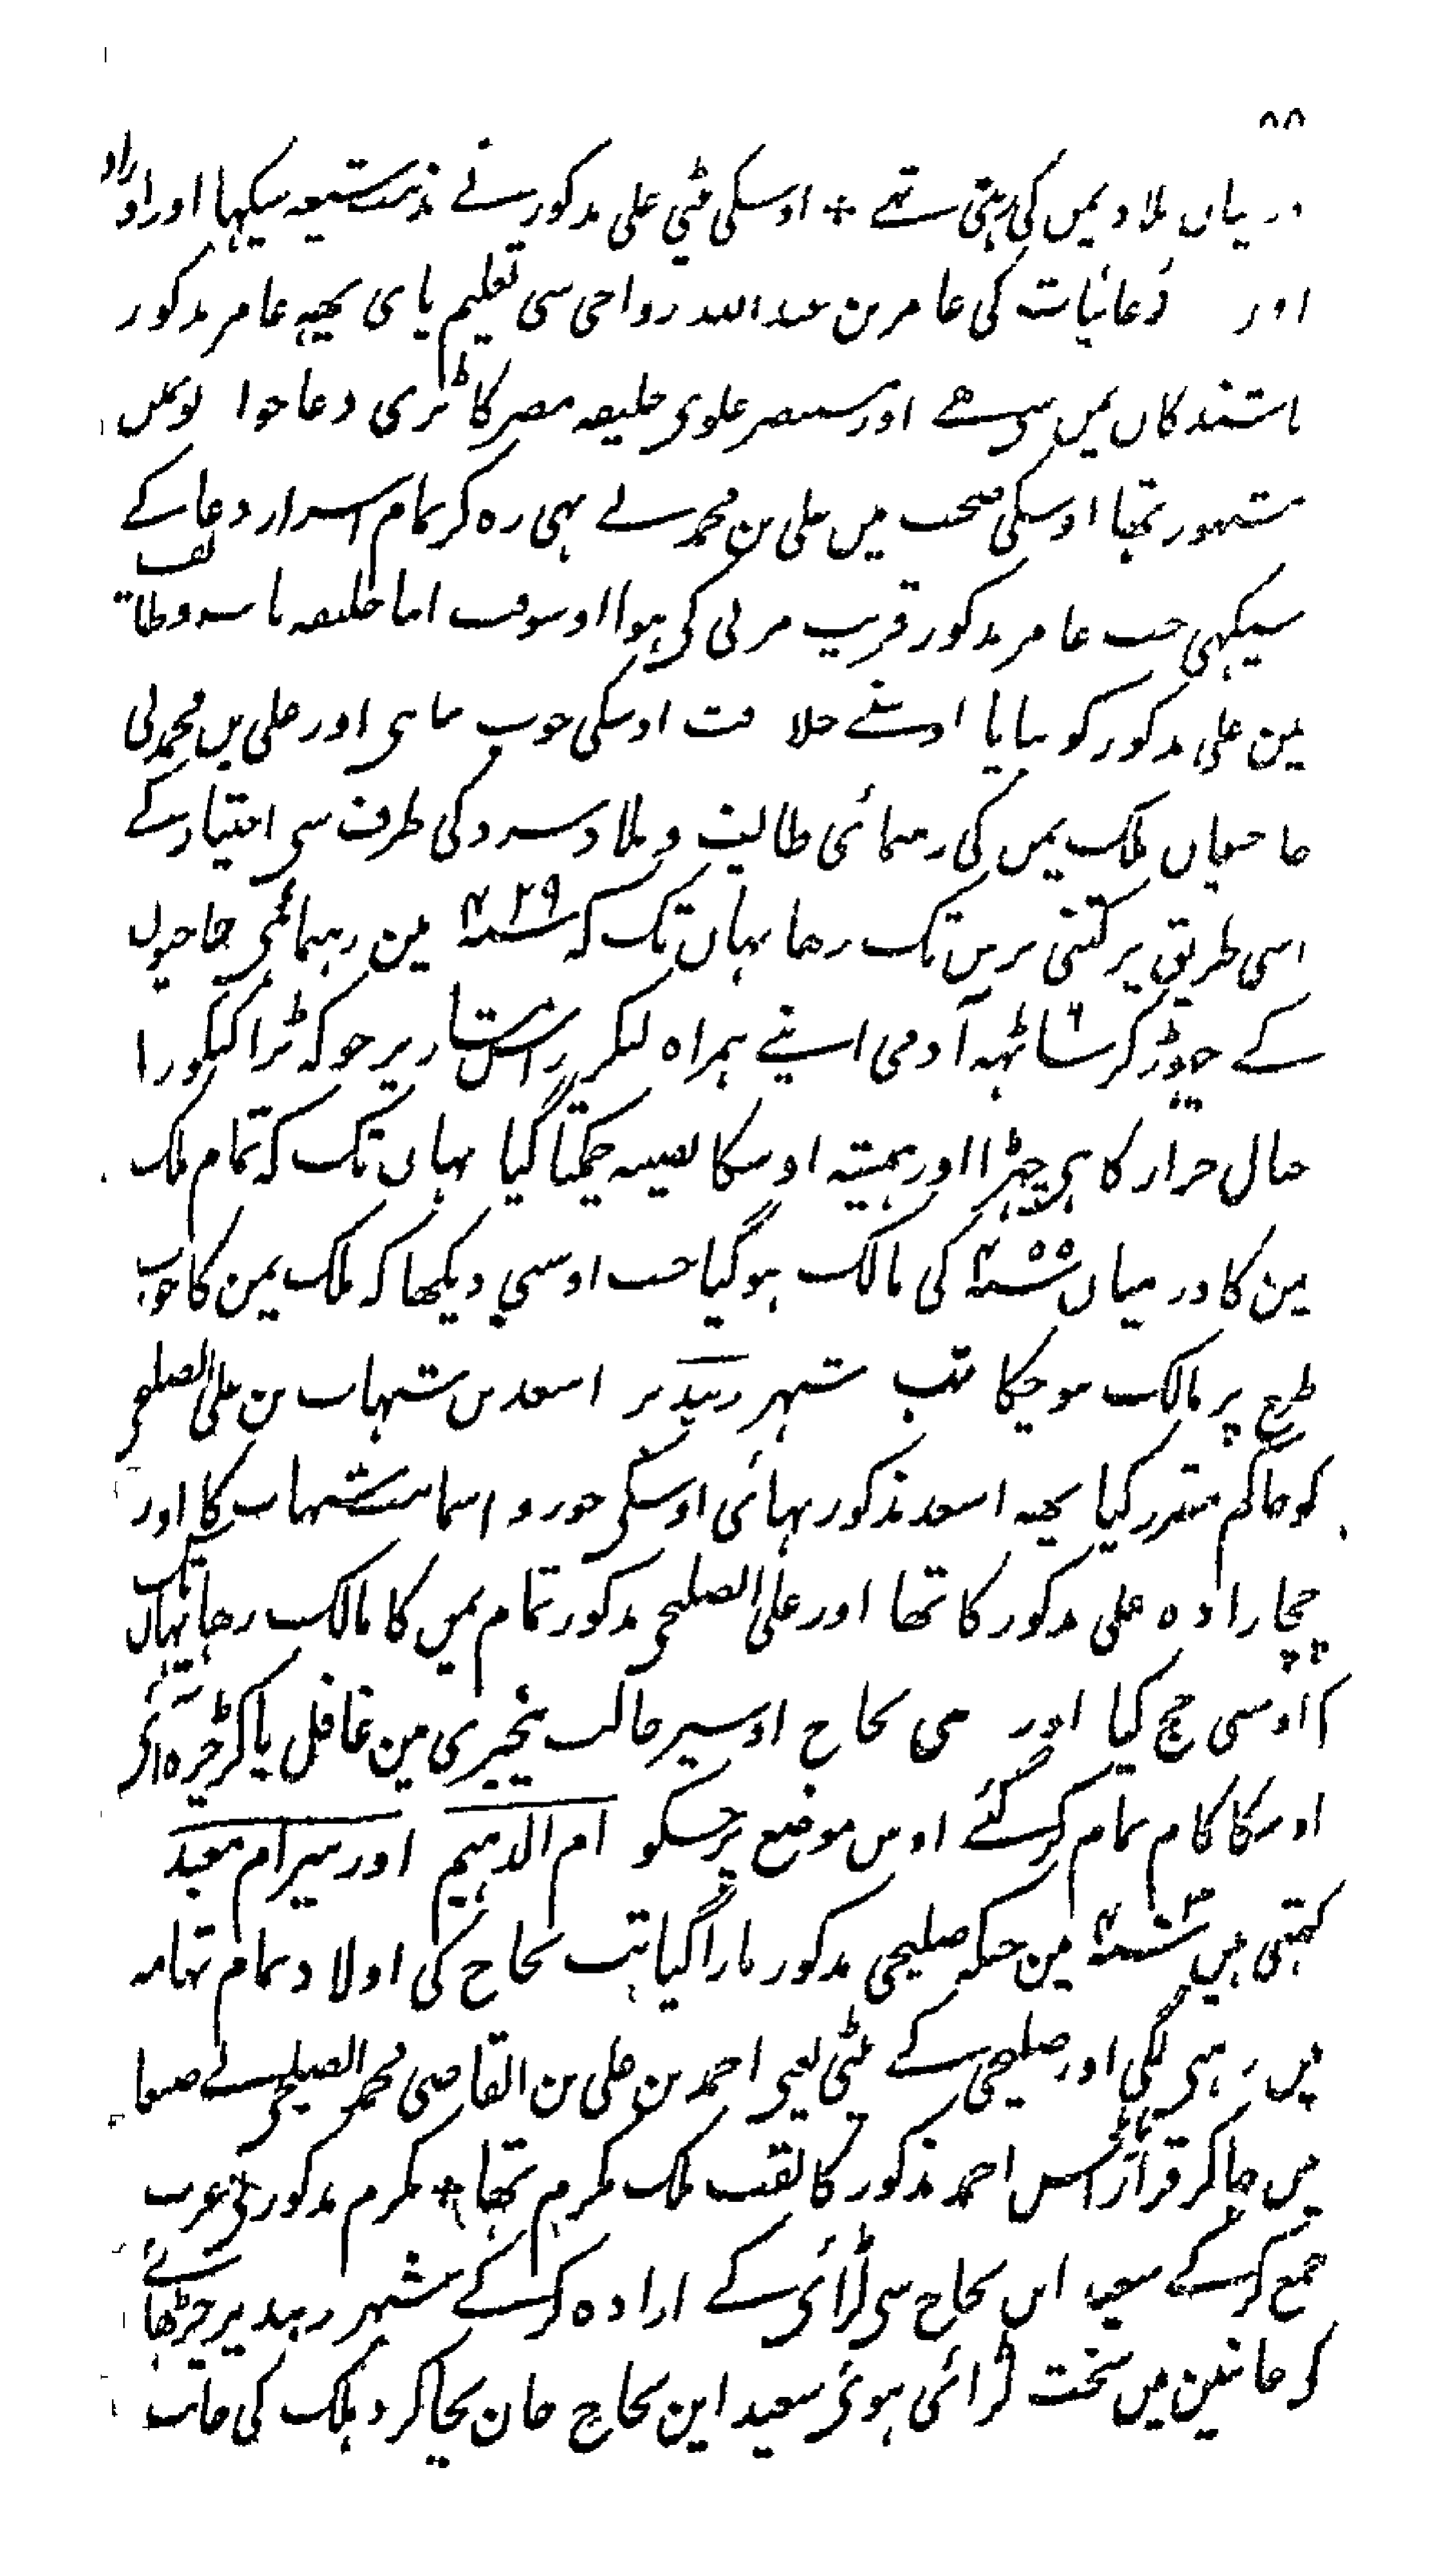 ۸۸
درمیان بلاد یمن کی رہتی تھے + اوسکی بیٹی علی مذکور نے مذہب شیعہ سیکہا اور اوراد
اور دعائیات کی عامر بن عبد اللہ رواحی سی تعلیم پای یہہ عامر مذکور
باشندکان یمن سی ہے اور مستنصر علوی خلیفہ مصر کا بڑی دعا خوا
مشہور تھا اوسکی صحبت میں علی بن محمد نے بہی رہ کر تمام اسرار دعا کے
سیکہی جب عامر مذکور قریب مرنی کی ہوا اوسوقت اپنا خلیفہ
مین علی مذکور کو بنایا اوسنے خلافت اوسکی خوب اور علی بن محمد نی
حاجیان ملک یمن کی رہنمائی طائف و بلاد سرو کی طرف سی اختیار کے
اسی طریق پر کتنی برس تک رہا یہاں تک کہ سنہ ۴۲۹ مین رہنمائی حاجیوں
کے چھوڑ کر ساٹہہ آدمی اپنے ہمراہ لیکر راس مشار پر جو کہ بڑا
جبال حراز کا ہی چڑہا اور ہمیشہ اوسکا نصیبہ چمکتا گیا یہاں تک کہ تمام ملک
مین کا درمیان سنہ ۴۵۵ کی مالک ہو گیا جب اوسی دیکھا کہ ملک یمن کا خوب
طرح پر مالک ہوچکا تب شہر زبید پر اسعد بن شہاب بن علی الصلیحی
کو حاکم مقرر کیا یہہ اسعد مذکور بہائی اوسکی جورو اسما بنت شہاب کا اور
چچازادہ علی مذکور کا تھا اور علی الصلیحی مذکور تمام یمن کا مالک رہا یہاں تک
کہ اوسی حج کیا اور بنی نجاح اوسپر حالت بیخبری مین غافل پاکر چڑہ آئی
اوسکا کام تمام کر گئے اوس موضع پر جسکو ام الدہیم اور بیر ام معبد
کہتی ہیں مین جبکہ صلیحی مذکور مارا گیا تب نجاح کی اولاد تمام تہامہ
میں رہنی لگی اور صلیحی کے بیٹی یعنی احمد بن علی بن القاضی محمد الصلیحی نے صنعا
میں جاکر قرار پائی اس احمد مذکور کا لقب ملک مکرم تھا + مکرم مذکور نی عرب
جمع کر کے سعید ابن نجاح سی لڑائی کے ارادہ کر کے شہر زبید پر چڑھائے
کی جانبین میں سخت لڑائی ہوئی سعید ابن نجاح جان بچا کر دہلک کی جانب